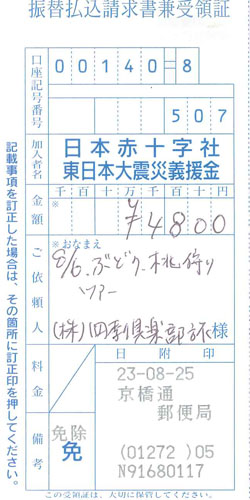 振替払込請求書兼受領証
口座記号番号
00140-8
507
加入者名
日本赤十字社
東日本大震災義援金
金額
千百十万千百十円
※
¥4800
ご依頼人
※おなまえ
8/6.ぶどう.桃狩り
ツアー
(株)四季倶楽部 様
料金
日附印
23-08-25
京橋通
郵便局
備考
免除
免
(01272)05
N91680117
記載事項を訂正した場合は、その箇所に訂正印を押してください。
この受領証は、大切に保管してください。